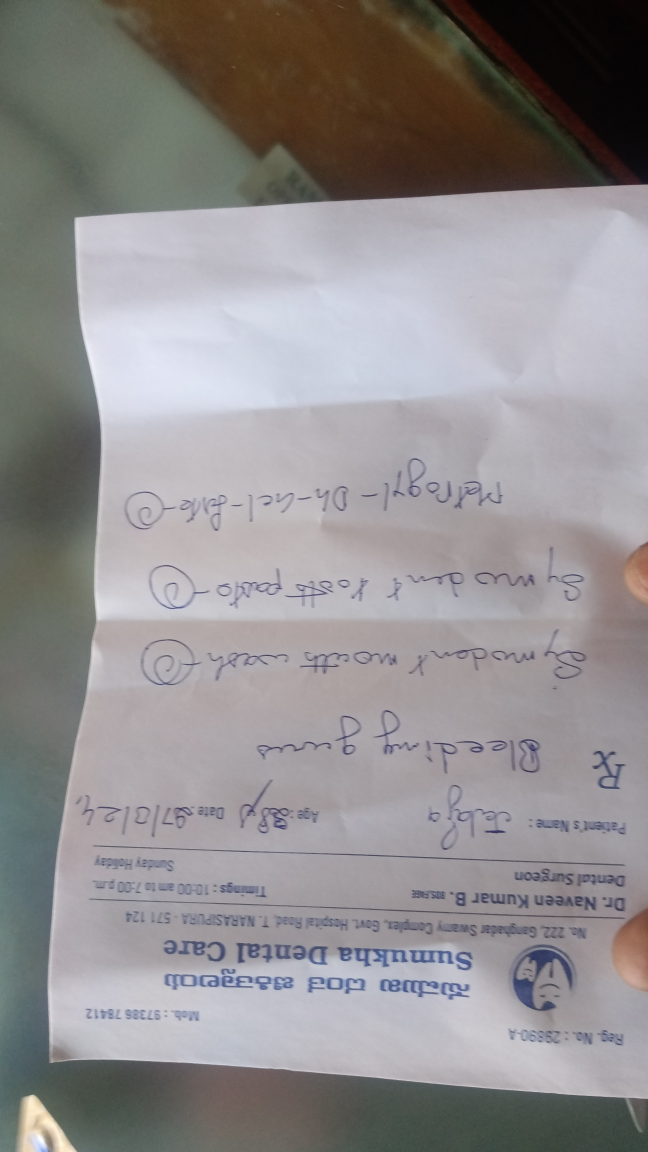 Reg. No. : 29890-A
Mob. : 97386 78412
ಸುಮುಖ ದಂತ ಚಿಕಿತ್ಸಾಲಯ
Sumukha Dental Care
No. 222, Ganghadar Swamy Complex, Govt. Hospital Road, T. NARASIPURA - 571 124
Dr. Naveen Kumar B. BDS,FAGE
Dental Surgeon
Timings : 10:00 am to 7:00 p.m.
Sunday Holiday
Patient's Name :
Age : Date :
Rx Bleeding gums
Symodent mouth wash - 1
Symodent tooth paste - 1
Metrogyl - DG - Gel